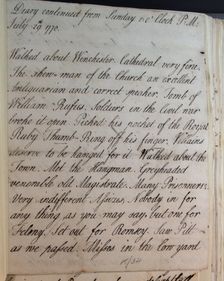 Diary continued from Sunday 5 o'Clock P.M.
July 29. 1770.
Walked about Winchester Cathedral very fine.
The Show-man of the Church an excellent
Antiquarian and correct speaker. Tomb of
William Rufus. Soldiers in the Civil war
broke it open. Picked his pocket of the Royal
Ruby Thumb-Ring off his finger. Villains
deserve to be hanged for it. Walked about the
Town. Met the Hangman. Greyheaded
venerable old Magistrate. Many Prisoners.
Very indifferent Assizes. Nobody in for
any thing as you may say but one for
Felony. Set out for Romsey. Saw Pitt
as we passed. Misses in the Cow yard